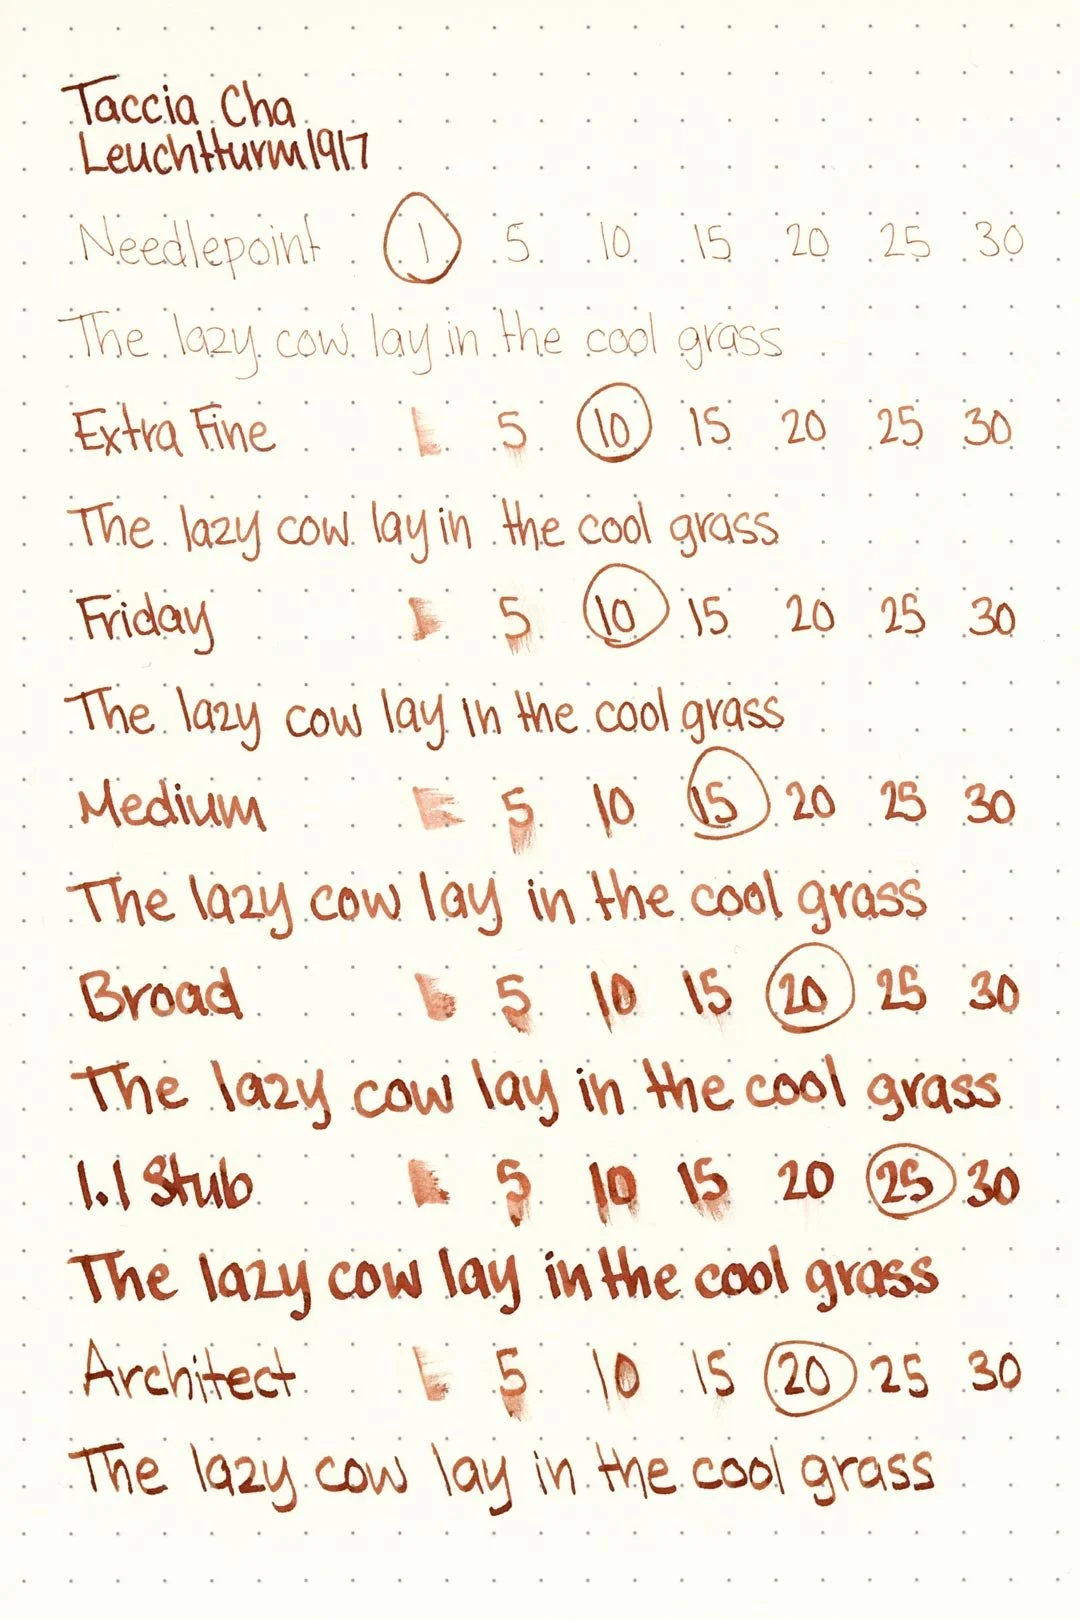 Taccia Cha
Leuchtturm1917
Needlepoint 1 5 10 15 20 25 30
The lazy cow lay in the cool grass
Extra Fine 1 5 10 15 20 25 30
The lazy cow lay in the cool grass
Friday 1 5 10 15 20 25 30
The lazy cow lay in the cool grass
Medium 1 5 10 15 20 25 30
The lazy cow lay in the cool grass
Broad 1 5 10 15 20 25 30
The lazy cow lay in the cool grass
1.1 Stub 1 5 10 15 20 25 30
The lazy cow lay in the cool grass
Architect 1 5 10 15 20 25 30
The lazy cow lay in the cool grass